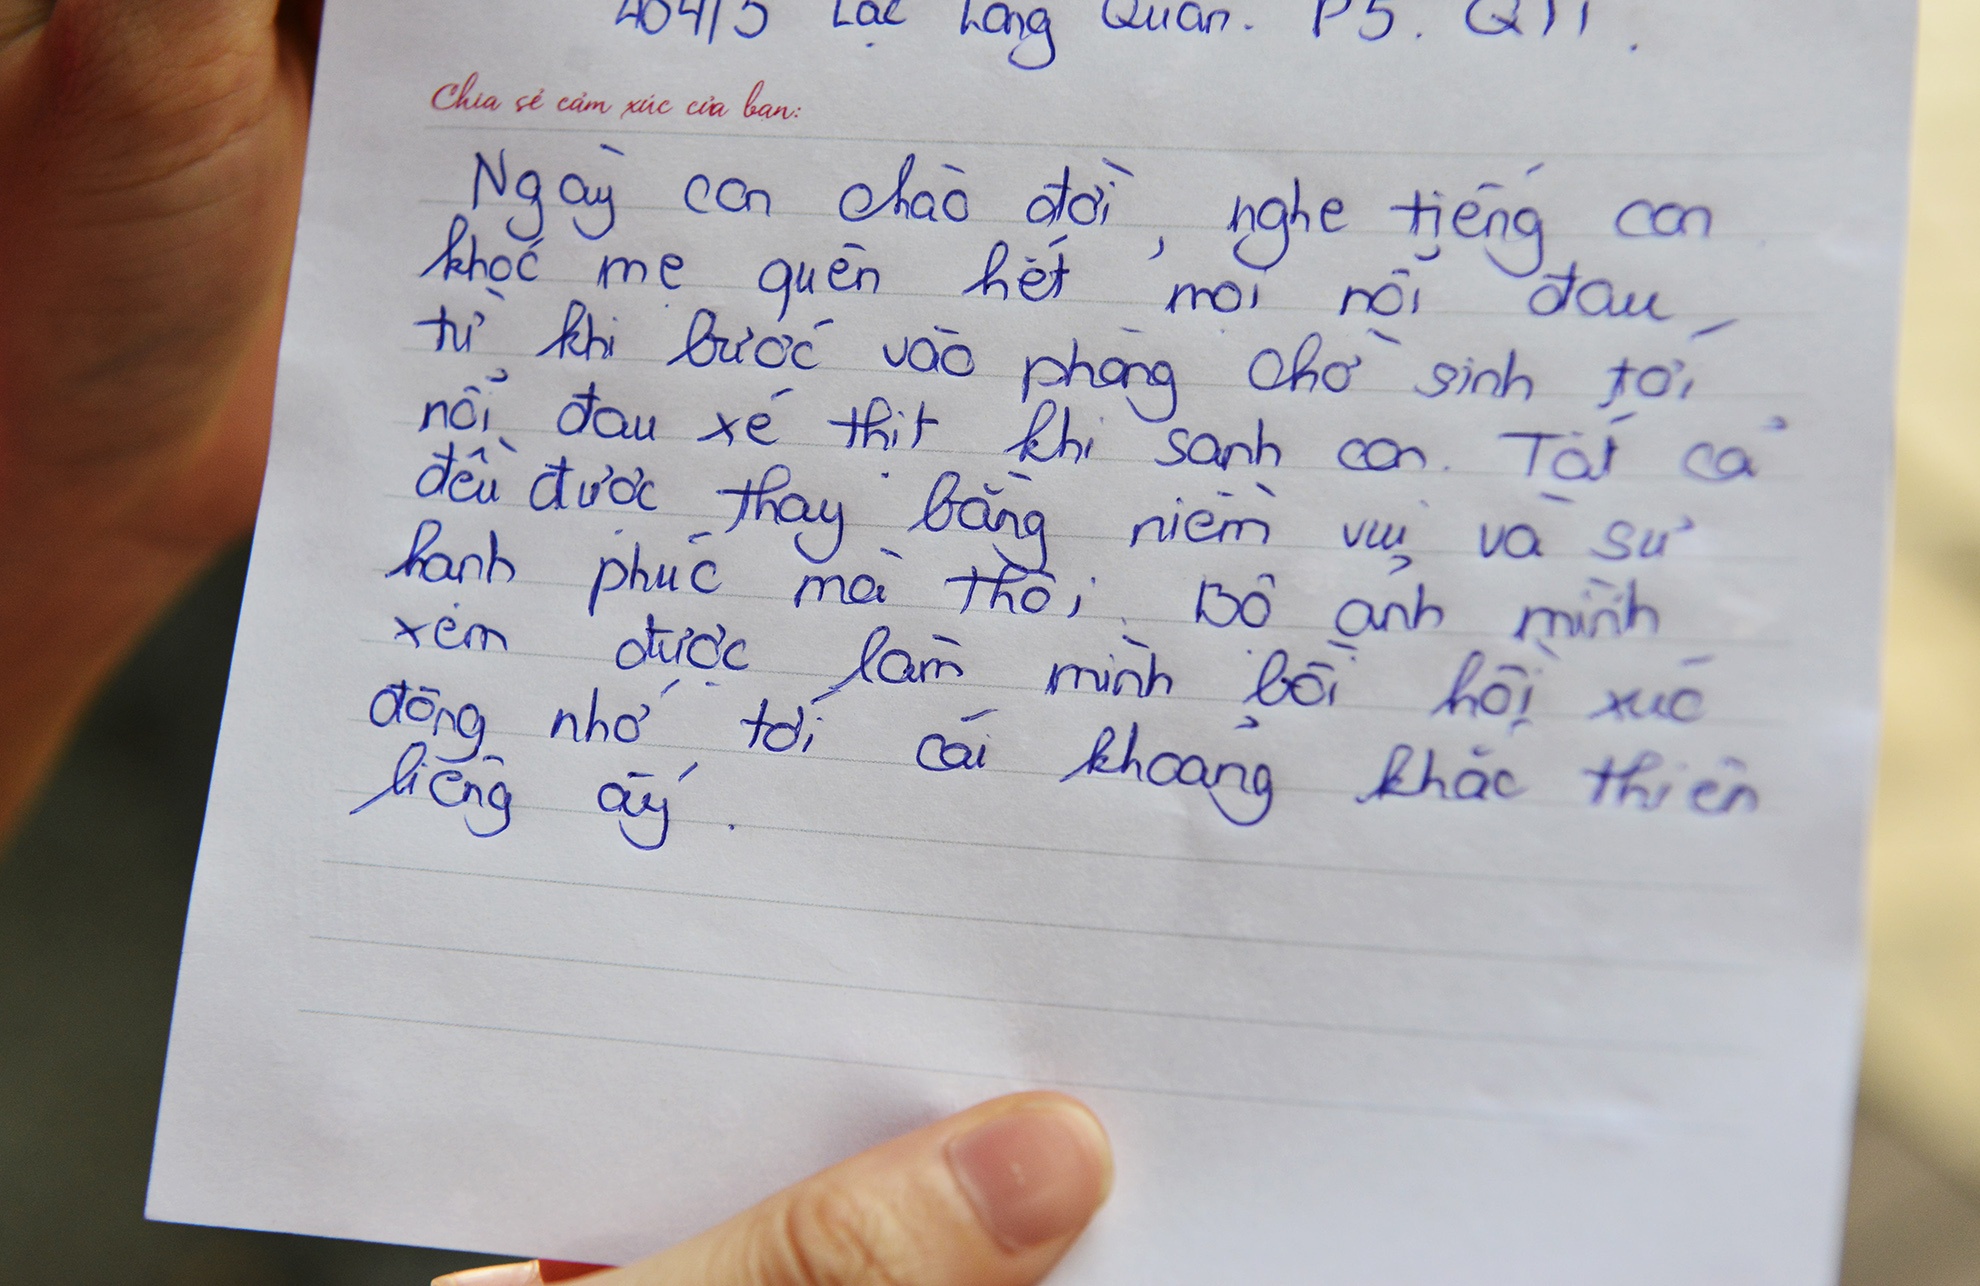 404/5 Lạc Long Quân. P5. Q11.
Chia sẻ cảm xúc của bạn:
Ngày con chào đời, nghe tiếng con
khóc mẹ quên hết mọi nỗi đau
từ khi bước vào phòng chờ sinh tới
nỗi đau xé thịt khi sanh con. Tất cả
đều được thay bằng niềm vui và sự
hạnh phúc mà thôi. Bộ ảnh mình
xem được làm mình bồi hồi xúc
động nhớ tới cái khoảng khắc thiên
liêng ấy.